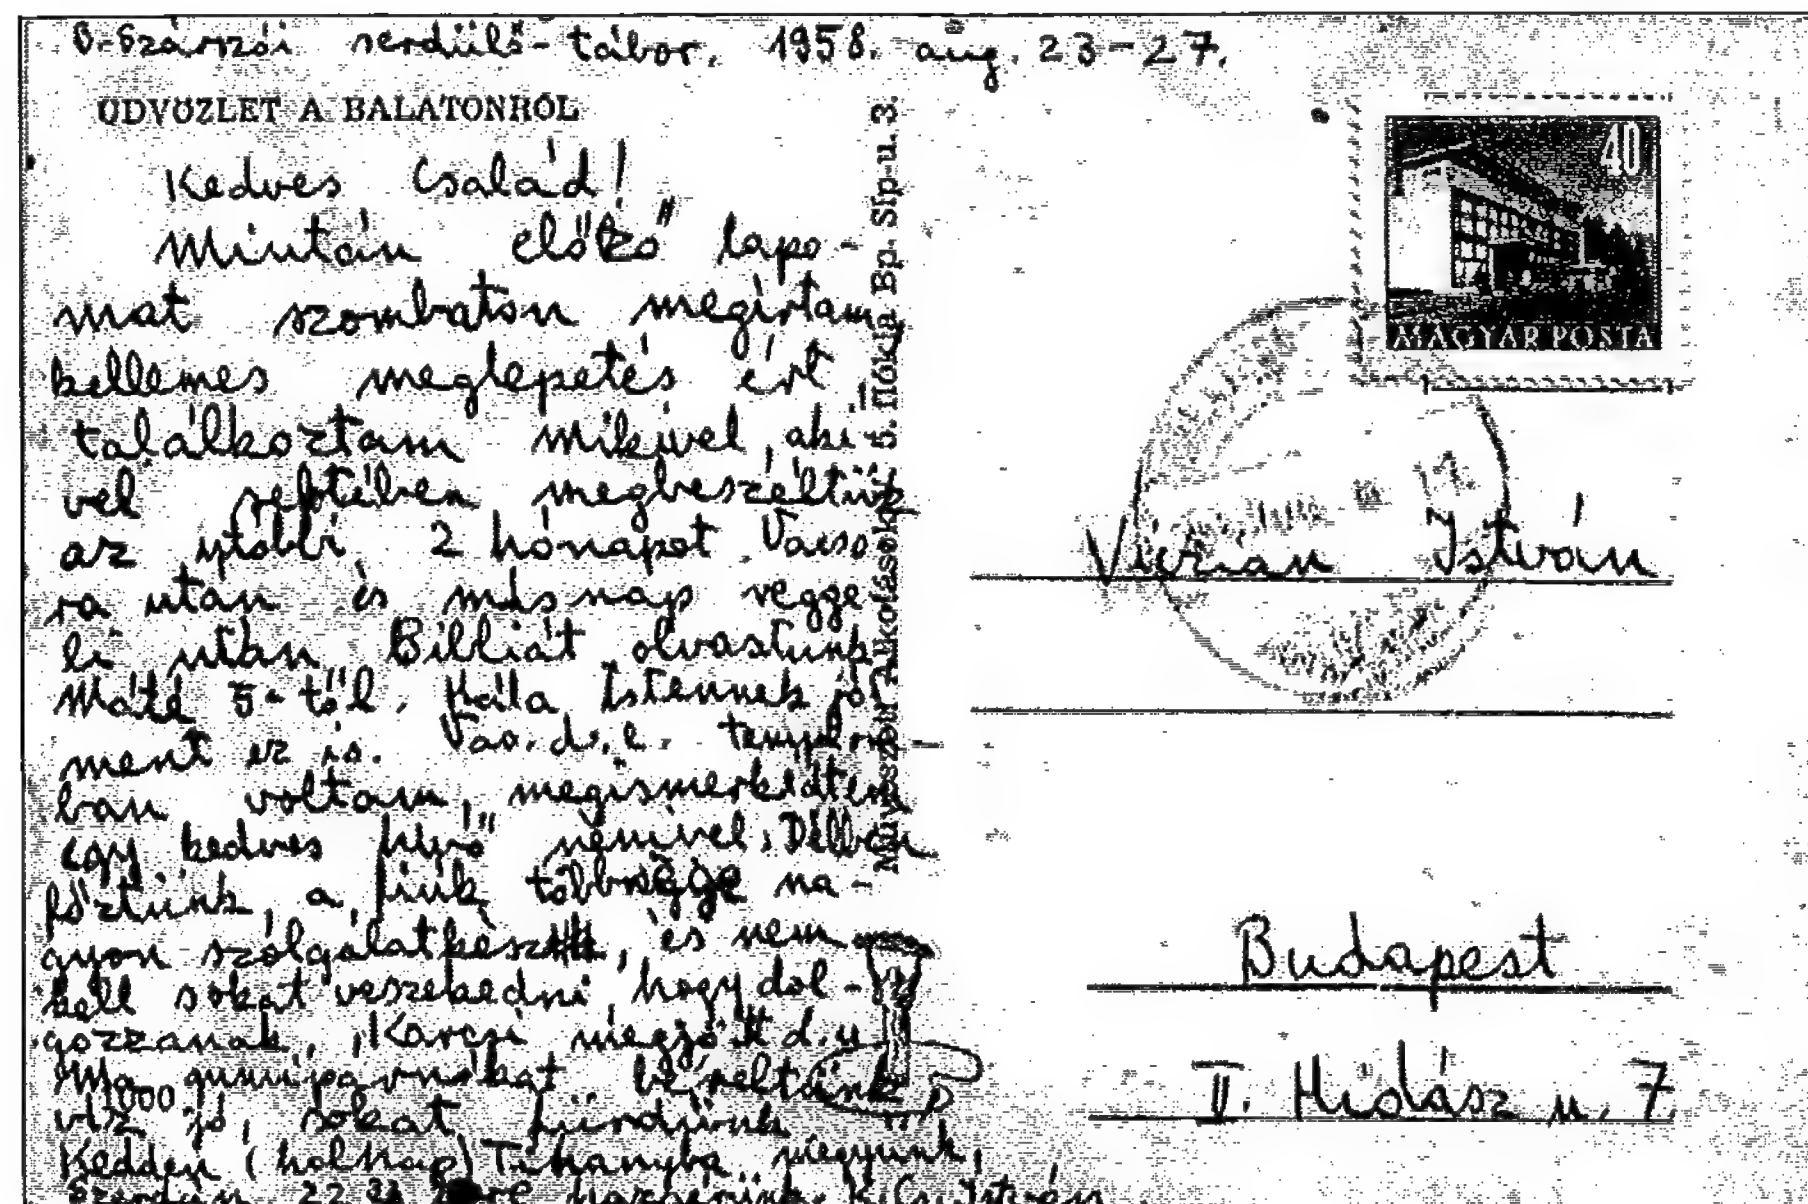 B-Szárszói serdülő-tábor. 1958. aug. 23-27.
ÜDVÖZLET A BALATONRÓL
Kedves Család!
Miután előző lapo-
mat szombaton megírtam
kellemes meglepetés ért
találkoztam Mikivel, aki-
vel megbeszéltük
az utóbbi 2 hónapot. Vacso
ra után és másnap regge
li után Bibliát olvastunk
Máté 5-ből. Hála Istennek jól
ment ez is. Vas. d. e. templom
ban voltam, megismerkedtem
egy kedves hívő nénivel. Délben
főztünk, a fiúk többsége na-
gyon szolgálatkész, és nem
kell sokat veszekedni, hogy dol-
gozzanak. Karcsi megjött d.u.
Ma gumipárnákat béreltünk
víz jó, sokat fürdünk
Kedden (holnap) Tihanyba megyünk,
Szerdán 22 hazaérünk. K. Cs. István
1000
Művészeti Alkotások 5. fiókja Bp. Síp-u. 3.
40
MAGYAR POSTA
István
Budapest
II. Hidász u. 7